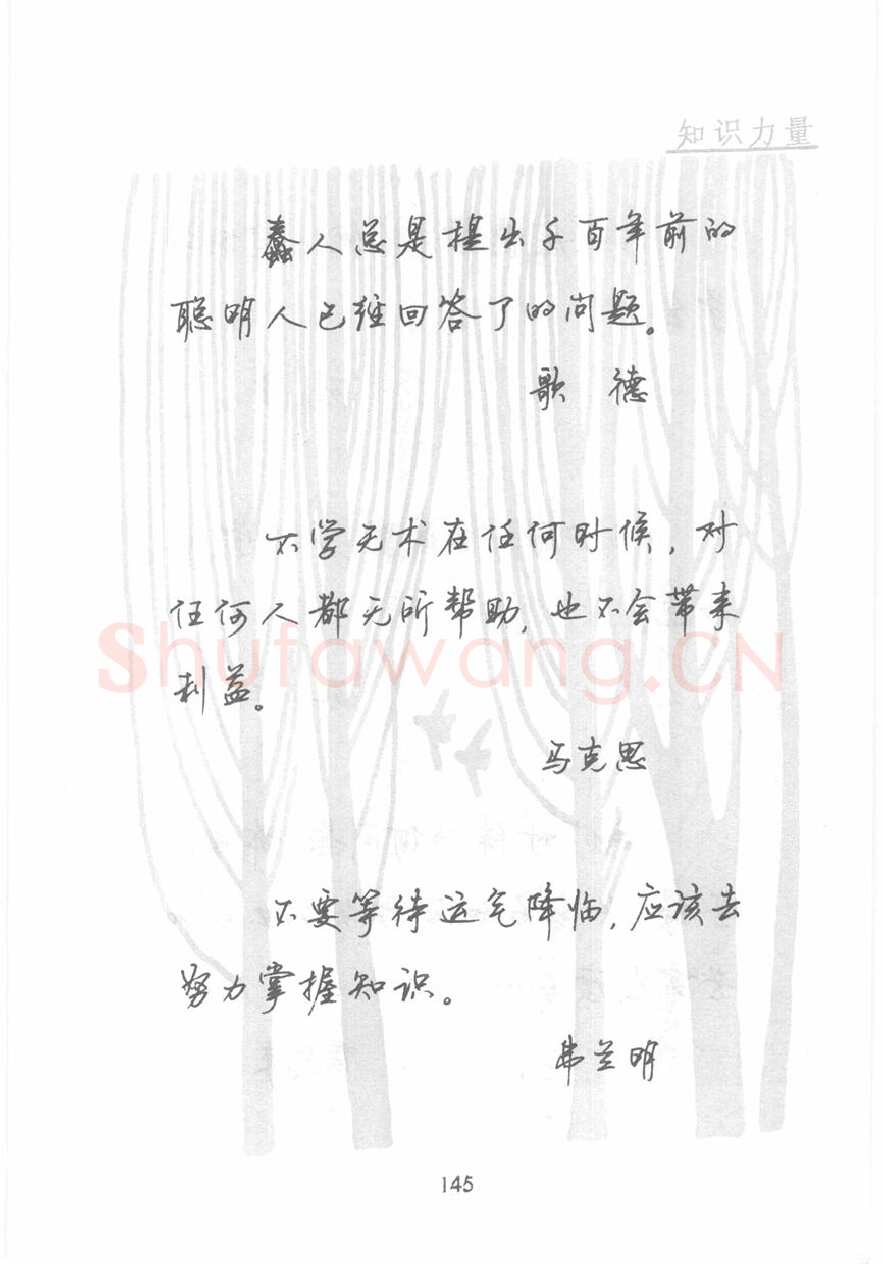 知识力量
蠢人总是提出千百年前的
聪明人已经回答了的问题。
歌 德
不学无术在任何时候，对
任何人都无所帮助，也不会带来
利益。
Shufawang.CN
马克思
不要等待运气降临，应该去
努力掌握知识。
弗兰明
145